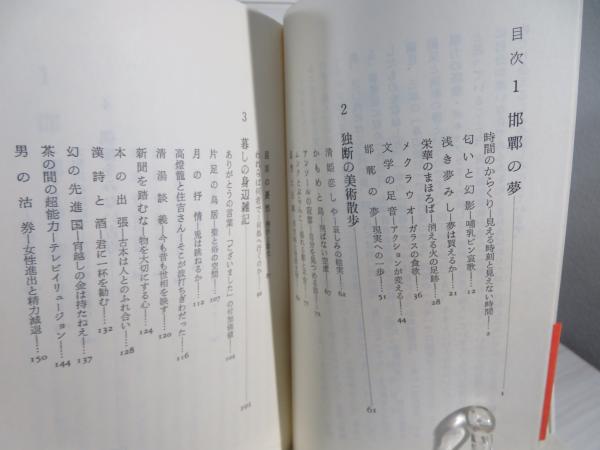 目次
1 邯鄲の夢 1
時間のからくり─見える時刻と見えない時間─ 2
匂いと幻影─哺乳ビン哀歌─ 12
浅き夢みし─夢は買えるか─ 21
栄華のまほろば─消える火の足跡─ 28
メクラウオ─ガラスの食欲─ 36
文学の足音─アクションが変える─ 44
邯鄲の夢─現実への一歩─ 51
2 独断の美術散歩 61
清姫恋しや─哀しみの絵実─ 62
かもめと鳥─飛ばない空虚─ 67
アンソールの寂寥─自分を見つめる
3 暮しの身辺雑記 101
ありがとうの言葉─「ございました」の付加価値─ 102
片足の鳥居─聖と俗の空間─ 107
月の抒情─兎は跳ねるか─ 112
高燈籠と住吉さん─そこが波打ちぎわだった─ 116
清湯談義─今も昔も世相を映す─ 120
新聞を踏むな─物を大切にする心─ 124
本の出張─古本は人とのふれ合い─ 128
漢詩と酒─君に一杯を勧む─ 132
幻の先進国─宵越しの金は持たねえ─ 137
茶の間の超能力─テレビイリュージョン─ 144
男の沽券─女性進出と精力減退─ 150